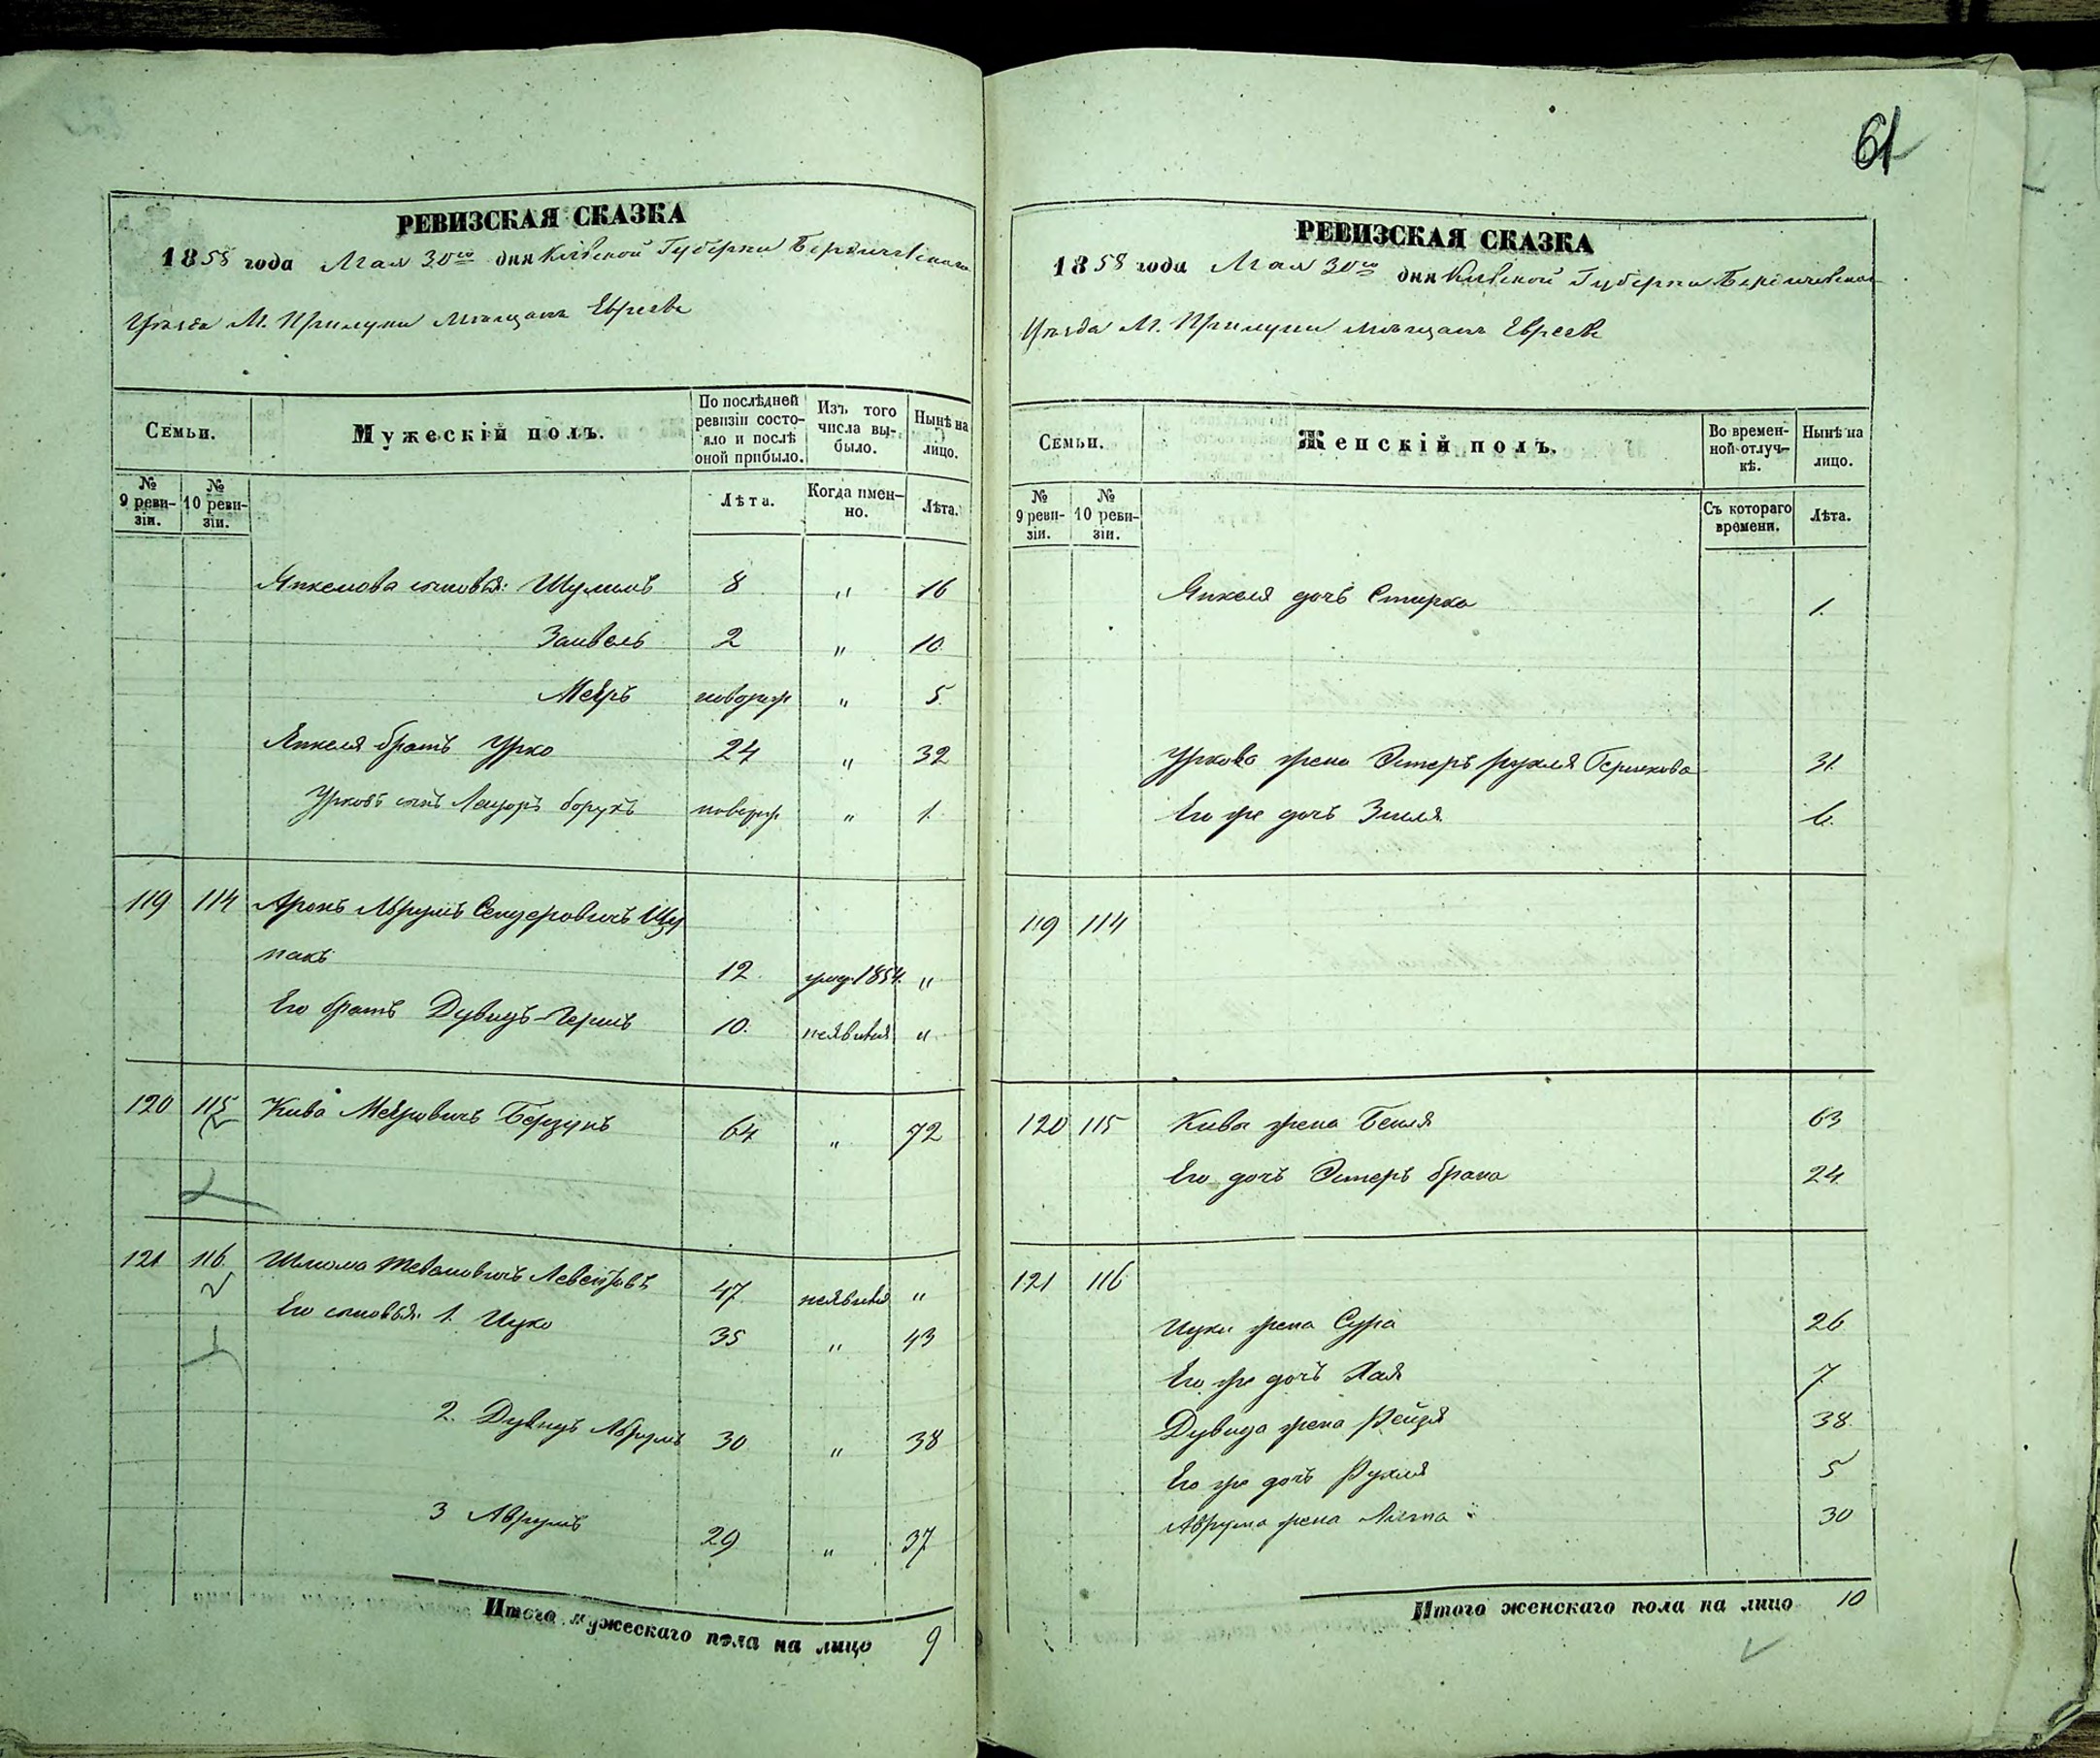 61
РЕВИЗСКАЯ СКАЗКА
1858 года Мая 30го дня Кіевской Губерніи Бердичевскаго
Уѣзда М. Прилуки мѣщанъ Евреевъ
Семьи.
Мужескій полъ.
По послѣдней ревизіи состояло и послѣ оной прибыло.
Изъ того числа выбыло.
Нынѣ на лицо.
№ 9 ревизіи.
№ 10 ревизіи.
Лѣта.
Когда именно.
Лѣта.
Янкелова сыновья: Шулимъ 8 " 16
Зайвель 2 " 10
Меѣръ новорож " 5
Янкеля братъ Урко 24 " 32
Урковъ сынъ Лейзоръ борухъ новорож " 1.
119 114 Аронъ Аврумъ Сендеровичъ Щу
пакъ 12. 1854. "
Его братъ Дувидъ-Гершъ 10. неявився "
120 115 Кива Меѣровичъ 64 " 72
121 116. Шлиома 47 неявився "
Его сыновья: 1. Ицко 35 " 43
2. Дувидъ Аврумъ 30 " 38
3 Аврумъ 29 " 37
Итого мужескаго пола на лицо 9
РЕВИЗСКАЯ СКАЗКА
1858 года Мая 30го дня Кіевской Губерніи Бердичевскаго
Уѣзда М. Прилуки мѣщанъ Евреевъ
Семьи.
Женскій полъ.
Во временной отлучкѣ.
Нынѣ на лицо.
№ 9 ревизіи.
№ 10 ревизіи.
Съ котораго времени.
Лѣта.
Янкеля дочь Стирка 1.
Уркова жена Эстеръ рухля Бершкова 31.
Его же дочь Зисля 6.
119 114
120 115 Кивы жена Бейля 63
Его дочь Эстеръ брана 24.
121 116
Ицки жена Сура 26
Его же дочь Хая 7
Дувида жена Рейзя 38.
Его же дочь Рухля 5
Аврума жена 30
Итого женскаго пола на лицо 10